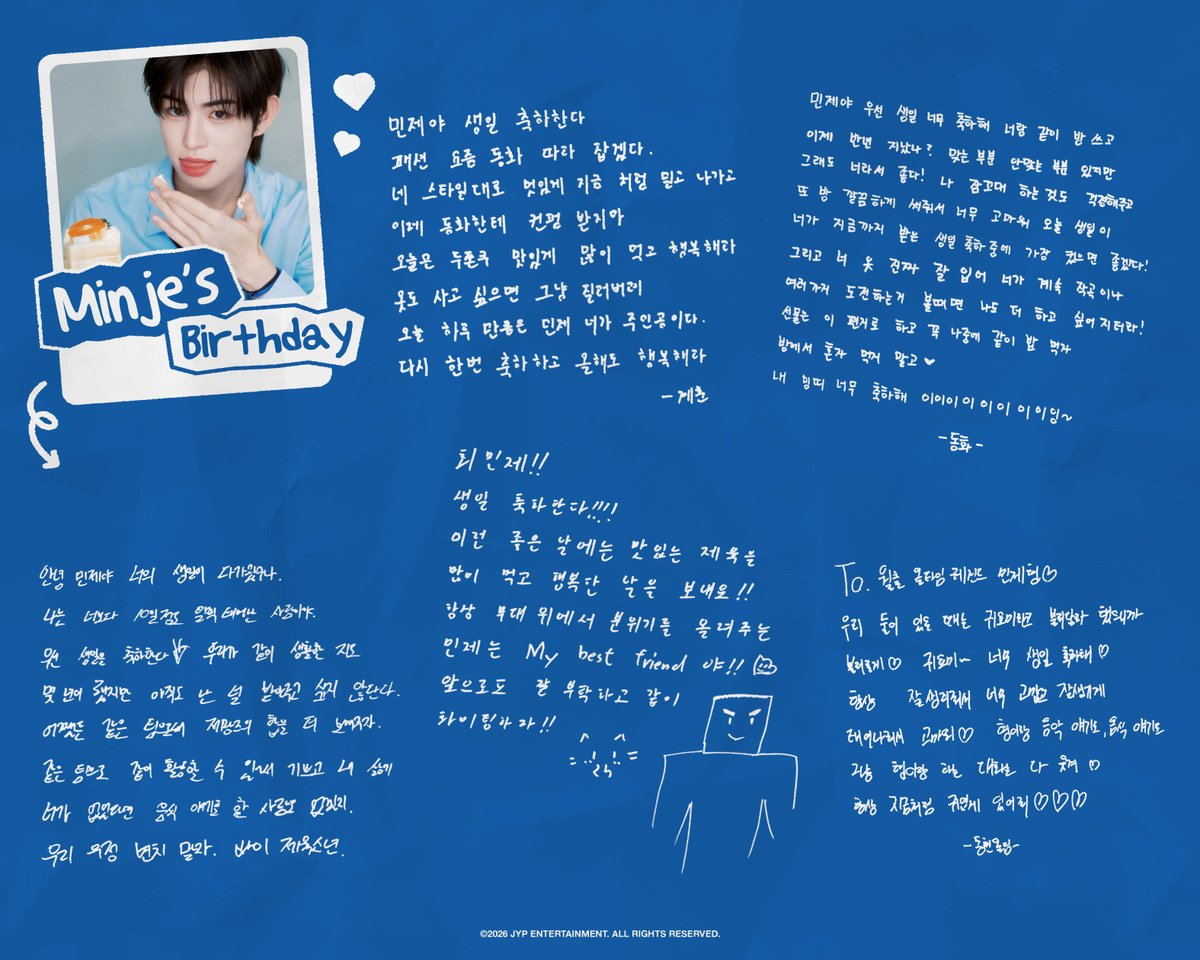 Minje's
Birthday
민제야 생일 축하한다
패션 요즘 동화 따라 잡겠다.
네 스타일대로 멋있게 지금 처럼 믿고 나가고
이제 동화한테 컨펌 받지마
오늘은 두쫀쿠 맛있게 많이 먹고 행복해라
옷도 사고 싶으면 그냥 질러버려
오늘 하루 만큼은 민제 너가 주인공이다.
다시 한번 축하하고 올해도 행복해라
-계훈
민제야 우선 생일 너무 축하해 너랑 같이 방 쓰고
이제 반년 지났나? 맞는 부분 안맞는 부분 있지만
그래도 너라서 좋다! 나 잠꼬대 하는것도 걱정해주고
또 방 깔끔하게 써줘서 너무 고마워 오늘 생일이
너가 지금까지 받은 생일 축하중에 가장 컸으면 좋겠다!
그리고 너 옷 진짜 잘 입어 너가 계속 작곡이나
여러가지 도전하는거 볼때면 나도 더 하고 싶어지더라!
선물은 이 편지로 하고 꼭 나중에 같이 밥 먹자
방에서 혼자 먹지 말고♥
내 밍띠 너무 축하해 이이이이이이이이잉~
-동화-
최민제!!
생일 축하한다!!!!
이런 좋은 날에는 맛있는 제육을
많이 먹고 행복한 날을 보내로!!
항상 무대 위에서 분위기를 올려주는
민제는 My best friend 야!!
앞으로도 잘 부탁하고 같이
화이팅하자!!
안녕 민제야 너의 생일이 다가왔구나.
나는 너보다 10일 정도 일찍 태어난 사람이야.
우선 생일을 축하한다 우리가 같이 생활한 지도
몇 년이 됐지만 아직도 난 널 보여주고 싶지 않단다.
어쨌든 같은 팀으로서 힙을 더 보여주자.
같은 팀으로 같이 활동할 수 있어서 기쁘고
너가 없었다면 음식 얘기를 할 사람도 없었지.
우리 우정 변치 말자. 바이
To. 월클 올타임 레전드 민제형♡
우리 둘이 있을 때는 귀요미라고 불러달라 했으니까
불러줄게♡ 귀요미~ 너무 생일 축하해♡
항상 잘 챙겨줘서 너무 고맙고 잘생기게
태어나줘서 고마워♡ 형이랑 음악 얘기도, 음식 얘기도
그냥 형이랑 하는 대화는 다 웃겨♡
항상 지금처럼 귀엽게 있어줘♡♡♡
©2026 JYP ENTERTAINMENT. ALL RIGHTS RESERVED.